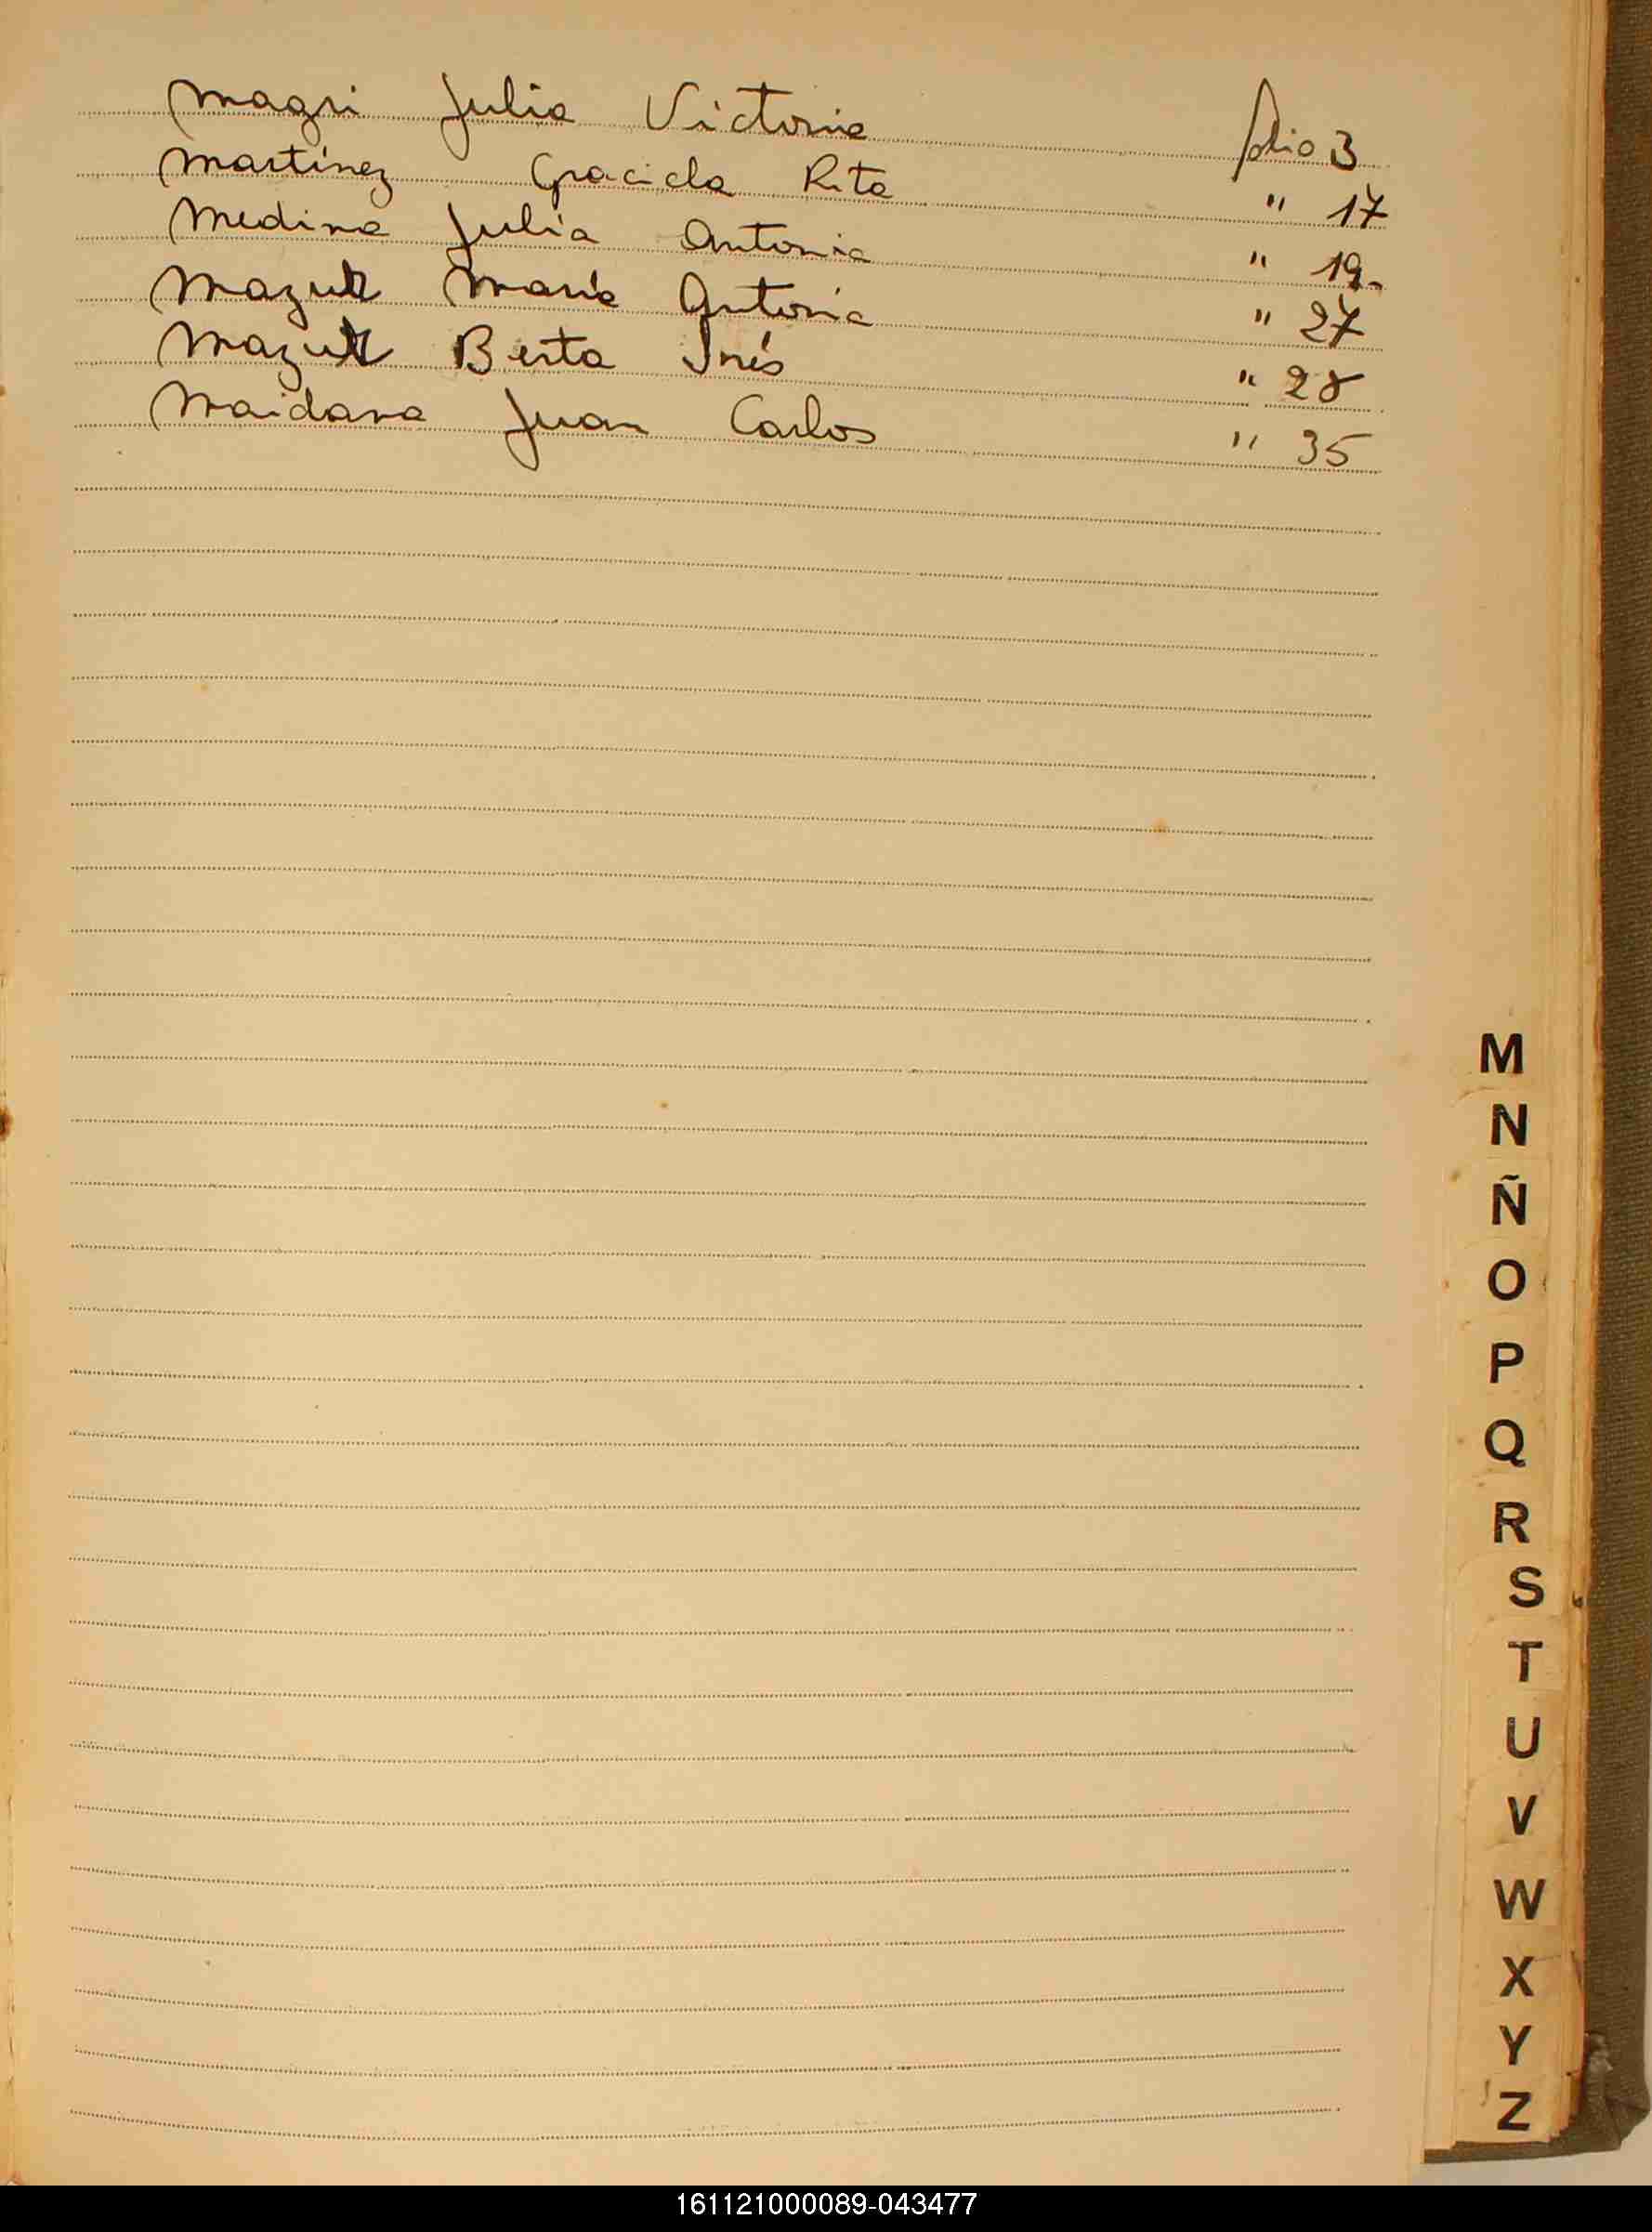 Magri Julia Victoria folio 3
Martínez Graciela Rita " 17
Medina Julia Antonia " 19.
María Antonia " 27
Berta Inés " 28
Maidana Juan Carlos " 35
M
N
Ñ
O
P
Q
R
S
T
U
V
W
X
Y
Z
161121000089-043477